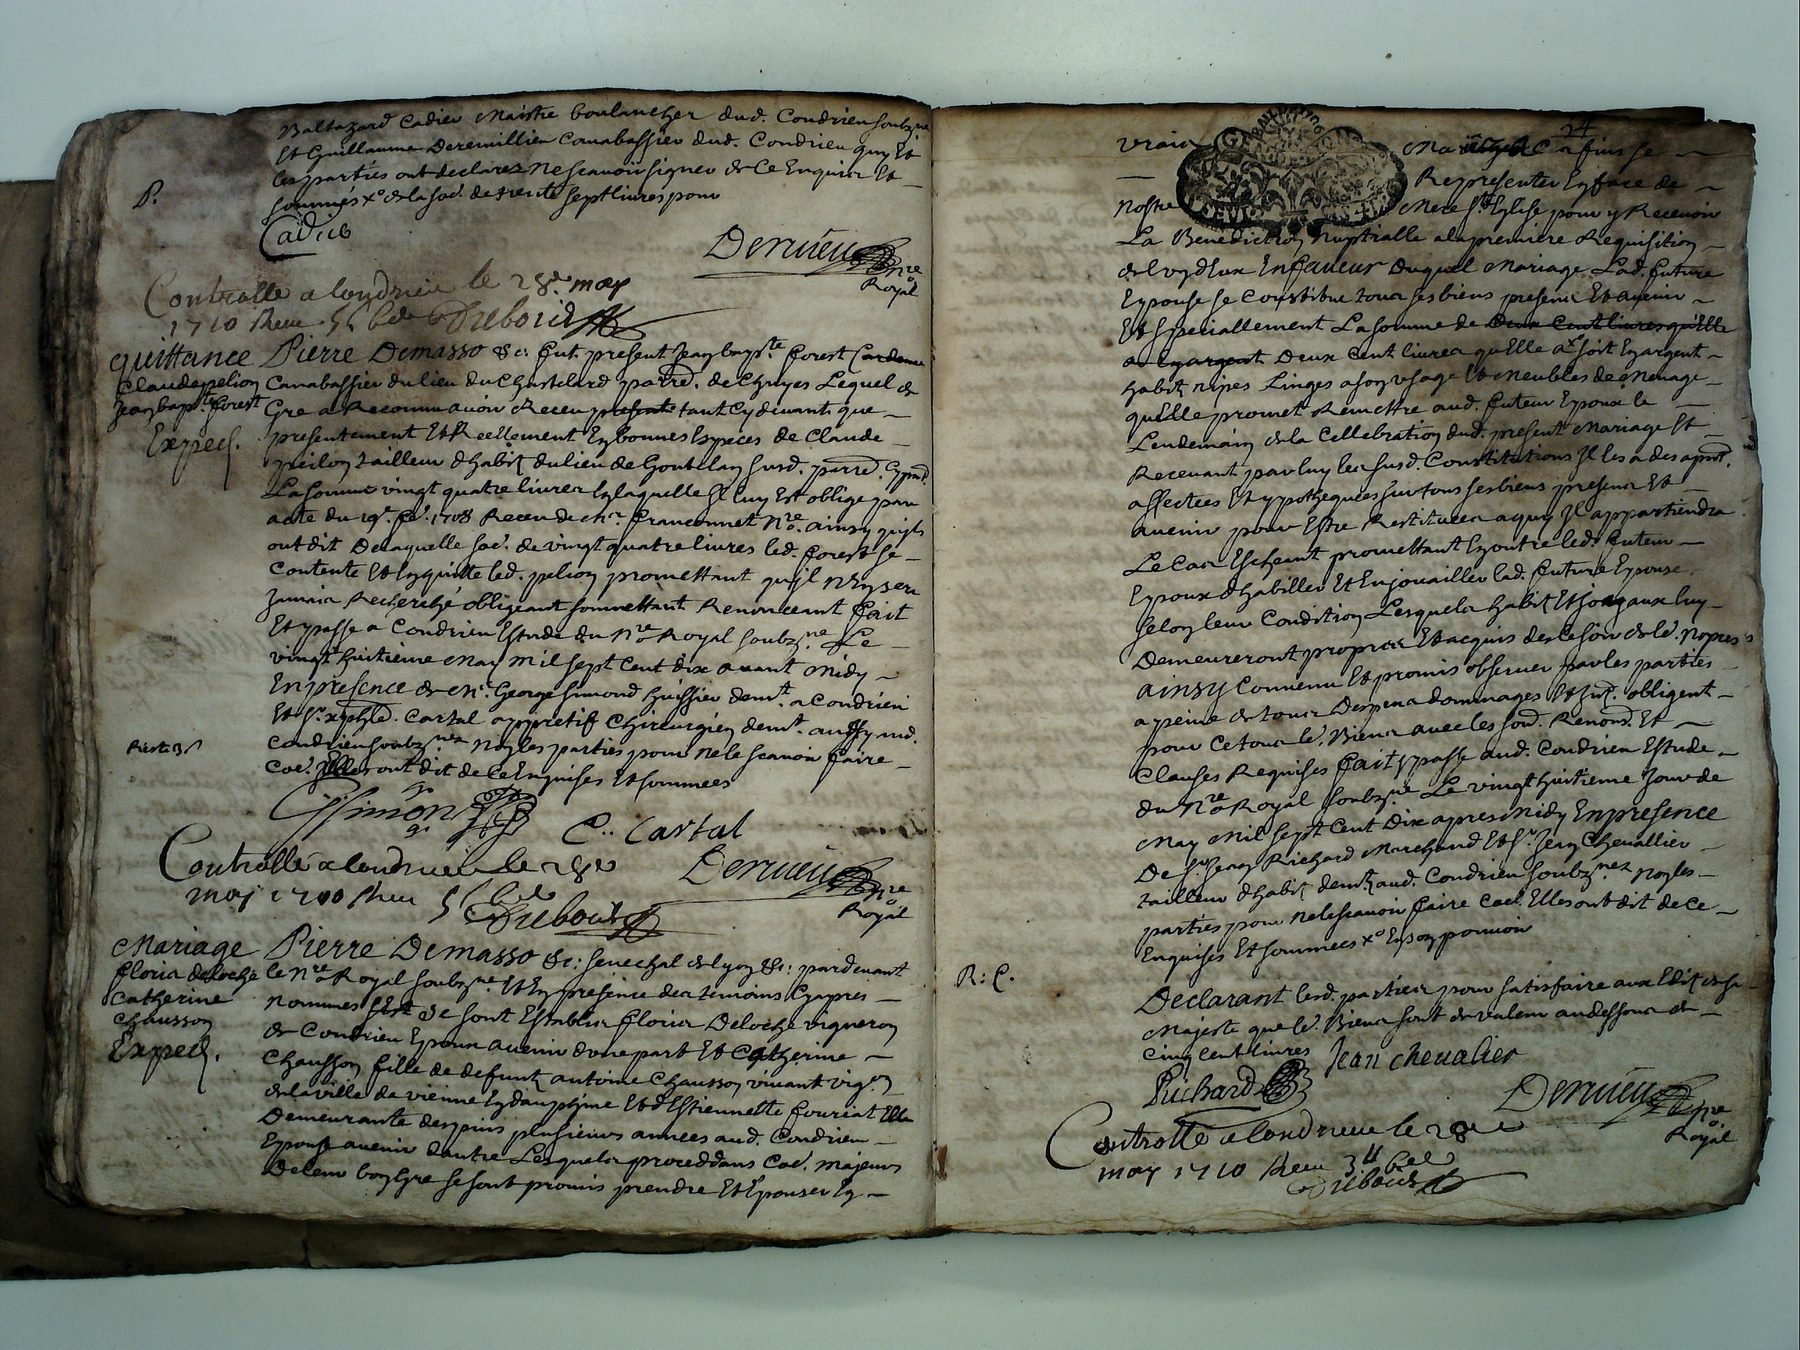 Baltazard Cadier Maistre boulancher dud. Condrieu soubz.ne
Et Guillaume Deremillieu Canabassier dud. Condrieu quy Et
les parties ont declarez Ne scavoir signer de Ce Enquis Et
sommés x.o de la sod. de trente sept livres pour
P.
Cadier
Deruieu
n.re Royal
Controlle a Condrieu le 28.e may
1710 Receu
Dubouis
quittance
Claude pelion
Jean bap.te forest
Exped.
Pierre Demasso &c. fut present Jean bap.te forest
Canabassier du lieu du Chastelard parre. de Chuyes Lequel de
Gre a Reconnu avoir Receu presente tant Cy devant que
presentement Et Reellement En bonnes Especes de Claude
peilon tailleur d'habitz du lieu de Gontelan susd. parre.
La somme vingt quatre livres En laquelle Il luy Est oblige par
acte du 19.e fe. 1708 Receu de M.e franconnet N.re ainsy quils
ont dit De laquelle sod. de vingt quatre livres led. forest se
Contente Et En quitte led. pelion promettant qu'il N'En sera
Jamais Recherché obligeant sommettant Renonceant fait
Et passe a Condrieu Estude du N.re Royal soubz.ne Le
vingt huitieme May mil sept Cent dix avant Midy
En presence de M.e George Simond huissier dem.t a Condrieu
Et S.r Cartal appretif Chirurgien dem.t aussy aud.
Condrieu soubz.nez Non les parties pour ne le scavoir faire
Coe. Elles ont dit de Ce Enquises Et sommees
GSimon
C. Cartal
Controlle a Condrieu le 28e
may 1710 Receu
Dubouis
Deruieu
n.re Royal
Mariage
floris deloche
Catherine
Chausson
Exped.
Pierre Demasso &c: senechal de lyon &c: pardevant
le N.re Royal soubz.ne Et En presence des temoins Cy apres
Nommes se sont Establis floris Deloche vigneron
de Condrieu Epoux avenir d'une part Et Catherine
Chausson fille de defunt antoine Chausson vivant vig.on
de la ville de vienne En dauphine Et d'Estiennette fouriat Elle
Demeurante despuis plusieurs annees aud. Condrieu
Epouse avenir d'autre Lesquels proceddans Coe. majeurs
De leur bon Gre se sont promis prendre Et Epouser En
24
vray Mariage Et a fins se
Representer En face de
Nostre Mere S.te Eglise pour y Recevoir
La Benediction Nuptialle a la premiere Requisition
de l'un d'Eux En faveur Duquel Mariage Lad. future
Epouse se Constitue tous ses biens presens Et avenir
Et specialement La somme de Deux Cent livres qu'Elle
a En argent Deux Cent livres qu'Elle a soit En argent
habitz nipes Linges a son usage Et Meubles de Menage
qu'Elle promet Remettre aud. futeur Epoux le
Lendemain de la Cellebration dud. present Mariage Et
Recevant par luy les susd. Constitutions Il les a des apnt.
affectees Et ypothequees sur tous ses biens presens Et
avenir pour Estre Restituees a quy Il appartiendra
Le Cas Escheant promettant En outre led. futeur
Epoux d'habiller Et Enjouailler lad. future Epouse
selon leur Condition Lesquels habitz Et Joyaux luy
Demeureront propres Et acquis des Ce soir de Nopces
ainsy Convenu Et promis observer par les parties
a peine de tous Despens dommages Et Int. obligent
pour Ce tous Biens avec les soub. Renond. Et
Clauses Requises fait Et passe aud. Condrieu Estude
du N.re Royal soubz.ne Le vingt huitieme Jour de
May Mil sept Cent Dix apres Midy En presence
De S.r Jean Richard Marchand Et S.r Jean Chevallier
tailleur d'habitz dem.t aud. Condrieu soubz.nez Non les
parties pour ne le scavoir faire Coe. Elles ont dit de Ce
Enquises Et sommees
R: C.
Declarant lesd. parties pour satisfaire aux Editz de sa
Majeste que les. Biens sont de valeur au dessous de
Cinq Cent livres
Jean chevalier
Richard
Deruieu
n.re Royal
Controlle a Condrieu le 28e
may 1710 Receu
Dubouis